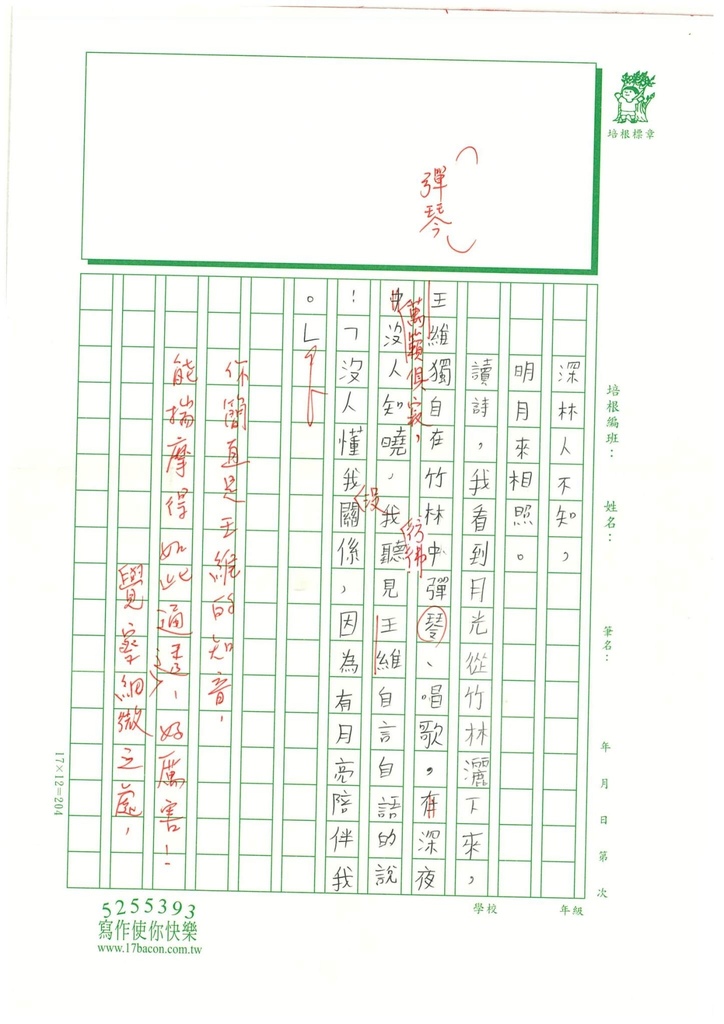 培根標章
彈琴
培根編班：
姓名：
筆名：
年 月 日 第 次
年級
學校
深林人不知，
明月來相照。
讀詩，我看到月光從竹林灑下來，
王維獨自在竹林中彈琴、唱歌。在深夜
萬籟俱寂，
彷彿
中沒人知曉，我聽見王維自言自語的說
沒
！「沒人懂我關係，因為有月亮陪伴我
。」
你簡直是王維的知音，
能揣摩得如此通透，好厲害！
覺察細微之處，
17×12=204
5255393
寫作使你快樂
www.17bacon.com.tw